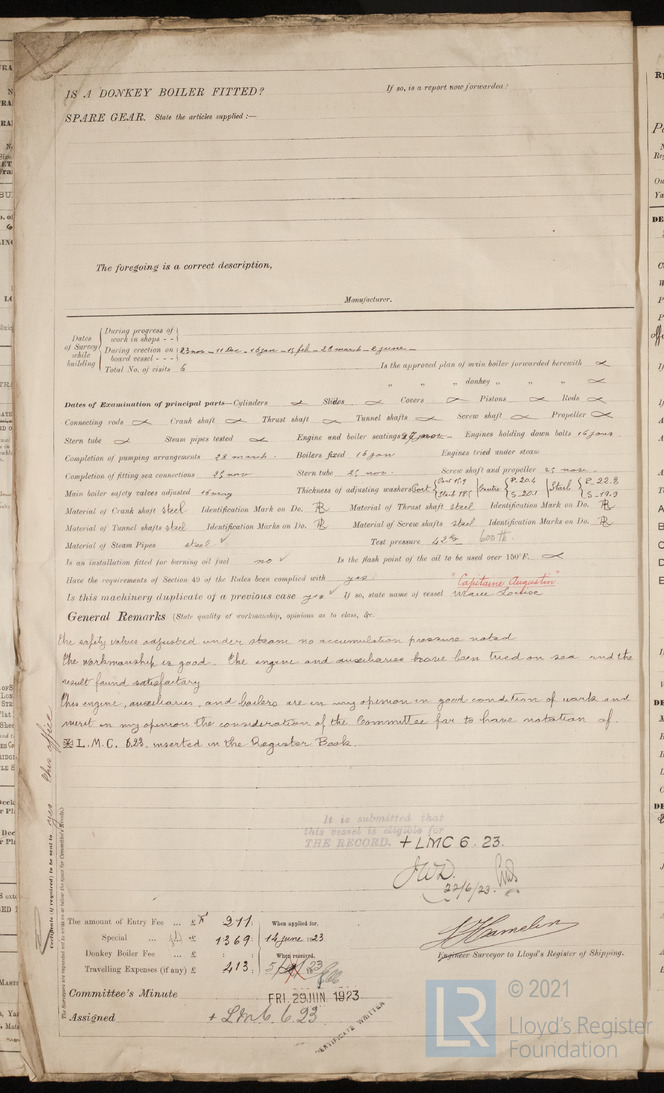 IS A DONKEY BOILER FITTED? If so, is a report now forwarded?
SPARE GEAR. State the articles supplied :—
The foregoing is a correct description,
Manufacturer.
Dates of Survey while building
During progress of work in shops - -
During erection on board vessel - - - 23 nov - 11 Dec - 16 jan - 15 feb - 28 march - 2 june -
Total No. of visits 6 Is the approved plan of main boiler forwarded herewith
" " " donkey " " "
Dates of Examination of principal parts—Cylinders Slides Covers Pistons Rods
Connecting rods Crank shaft Thrust shaft Tunnel shafts Screw shaft Propeller
Stern tube Steam pipes tested Engine and boiler seatings 27 nov - Engines holding down bolts 16 jan
Completion of pumping arrangements 28 march. Boilers fixed 16 jan Engines tried under steam
Completion of fitting sea connections 25 nov Stern tube 25 nov. Screw shaft and propeller 25 nov.
Main boiler safety valves adjusted Thickness of adjusting washers P. 20.4 S. 20.1 P. 22.8 S. 19.9
Material of Crank shaft steel Identification Mark on Do. Material of Thrust shaft steel Identification Mark on Do.
Material of Tunnel shafts steel Identification Marks on Do. Material of Screw shafts steel Identification Marks on Do.
Material of Steam Pipes steel ✓ Test pressure 600 lb
Is an installation fitted for burning oil fuel no ✓ Is the flash point of the oil to be used over 150°F.
Have the requirements of Section 49 of the Rules been complied with yes "Capitaine Augustin"
Is this machinery duplicate of a previous case yes ✓ If so, state name of vessel Marie Louise
General Remarks (State quality of workmanship, opinions as to class, &c.
the safety valves adjusted under steam no accumulation pressure noted
the workmanship is good. the engine and auxiliaries have been tried on sea and the
result found satisfactory
This engine, auxiliaries, and boilers are in my opinion in good condition of work and
merit in my opinion the consideration of the Committee for to have notation of
L.M.C. 6.23. inserted in the Register Book.
It is submitted that
this vessel is eligible for
THE RECORD. + LMC 6. 23.
22/6/23
The amount of Entry Fee ... £ 211 When applied for,
Special ... £ 1369 14 june 1923
Donkey Boiler Fee ... £ When received,
Travelling Expenses (if any) £ 413
Hamelin
Engineer Surveyor to Lloyd's Register of Shipping.
Committee's Minute FRI. 29 JUN. 1923
Assigned + LMC 6.23
CERTIFICATE WRITTEN
LR
© 2021
Lloyd's Register
Foundation